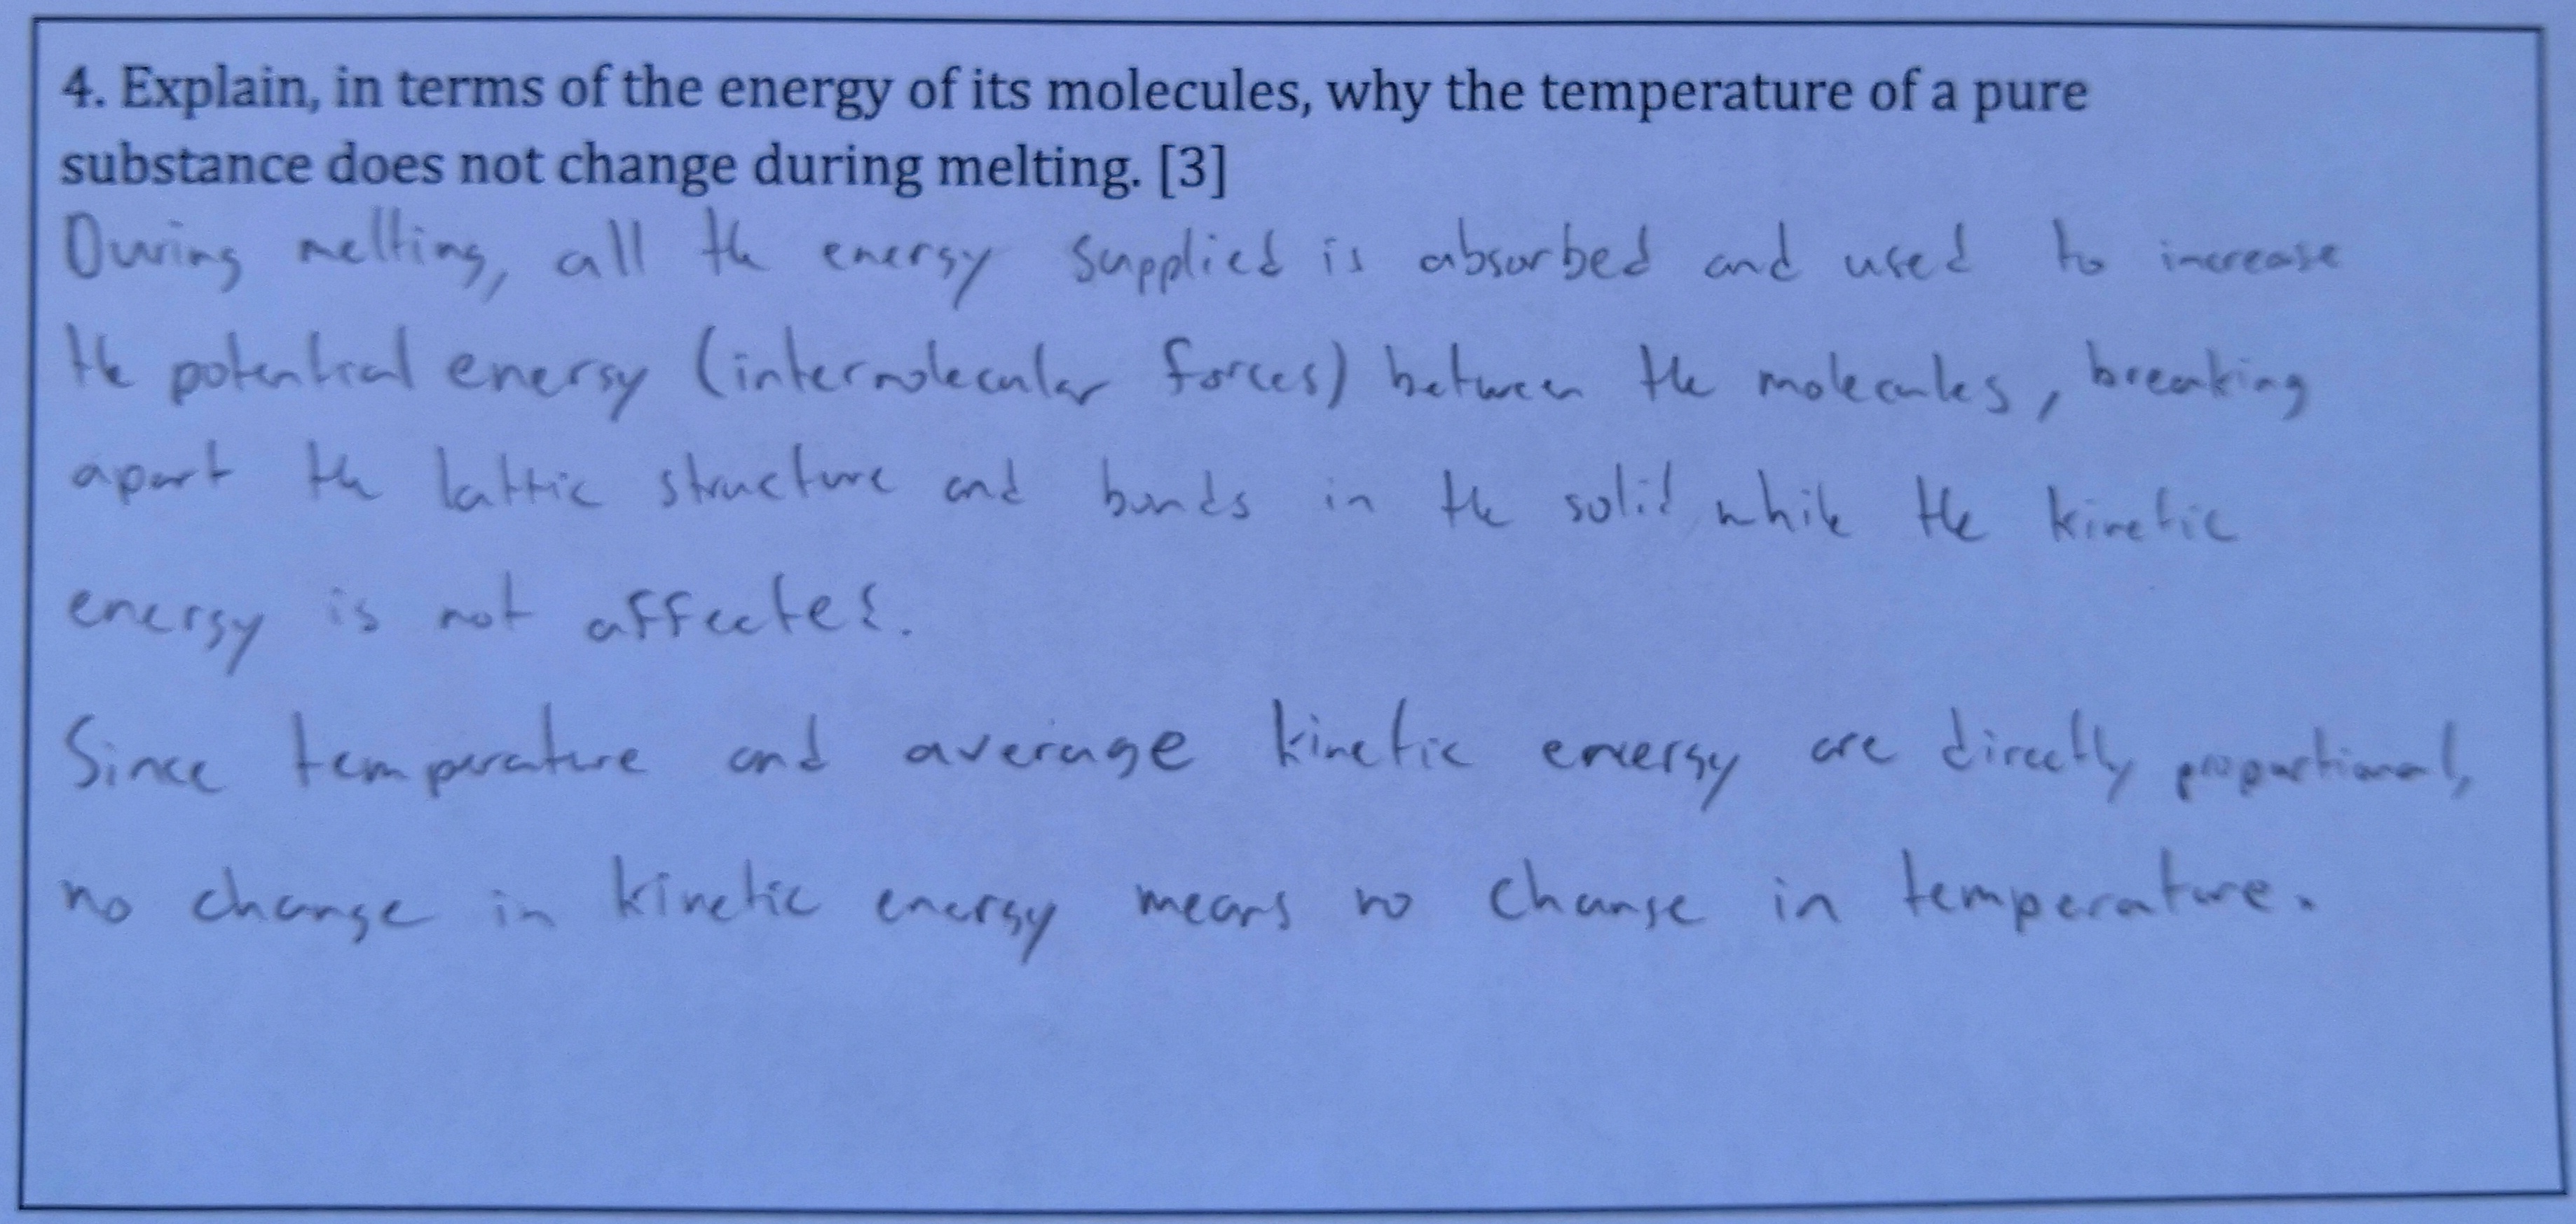 4. Explain, in terms of the energy of its molecules, why the temperature of a pure
substance does not change during melting. [3]
During melting, all the energy supplied is absorbed and used to increase
the potential energy (intermolecular forces) between the molecules, breaking
apart the lattic structure and bonds in the solid while the kinetic
energy is not affected.
Since temperature and average kinetic energy are directly proportional,
no change in kinetic energy means no change in temperature.